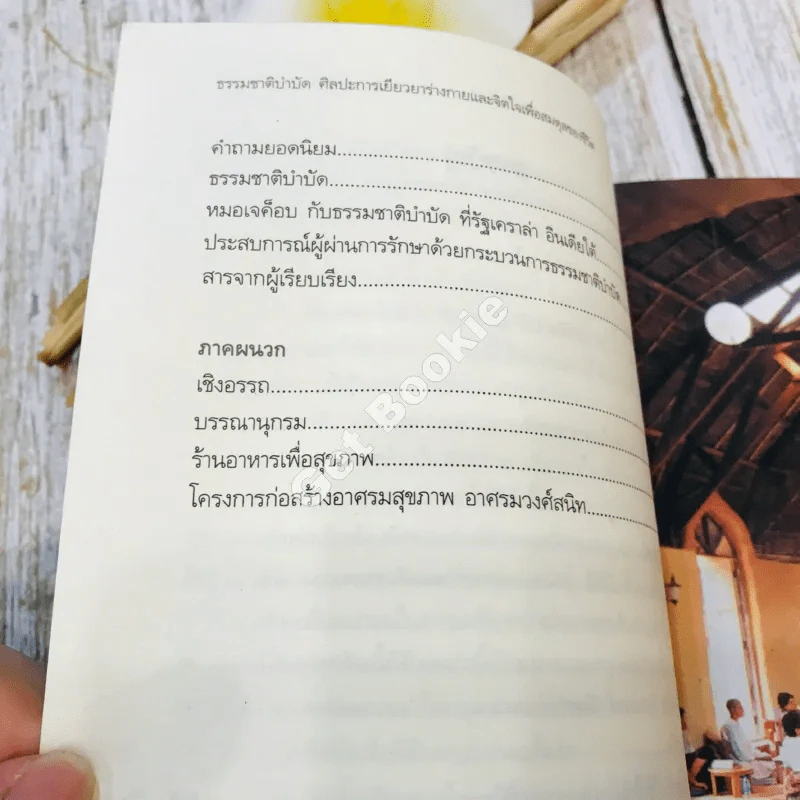 ธรรมชาติบำบัด ศิลปะการเยียวยาร่างกายและจิตใจเพื่อสมดุลของชีวิต
คำถามยอดนิยม
ธรรมชาติบำบัด
หมอเจค็อบ กับธรรมชาติบำบัด ที่รัฐเคราล่า อินเดียใต้
ประสบการณ์ผู้ผ่านการรักษาด้วยกระบวนการธรรมชาติบำบัด
สารจากผู้เรียบเรียง
ภาคผนวก
เชิงอรรถ
บรรณานุกรม
ร้านอาหารเพื่อสุขภาพ
โครงการก่อสร้างอาศรมสุขภาพ อาศรมวงศ์สนิท
Get Bookie